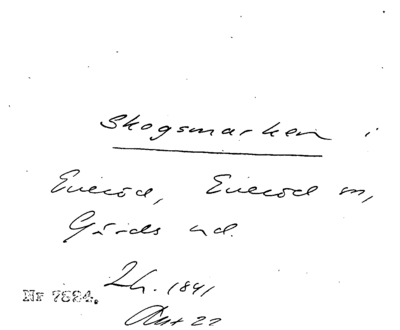 Skogsmarken i
Everöd, Everöd sn,
Gärds hd.
Lh. 1841
Akt 22
Nr 7824.